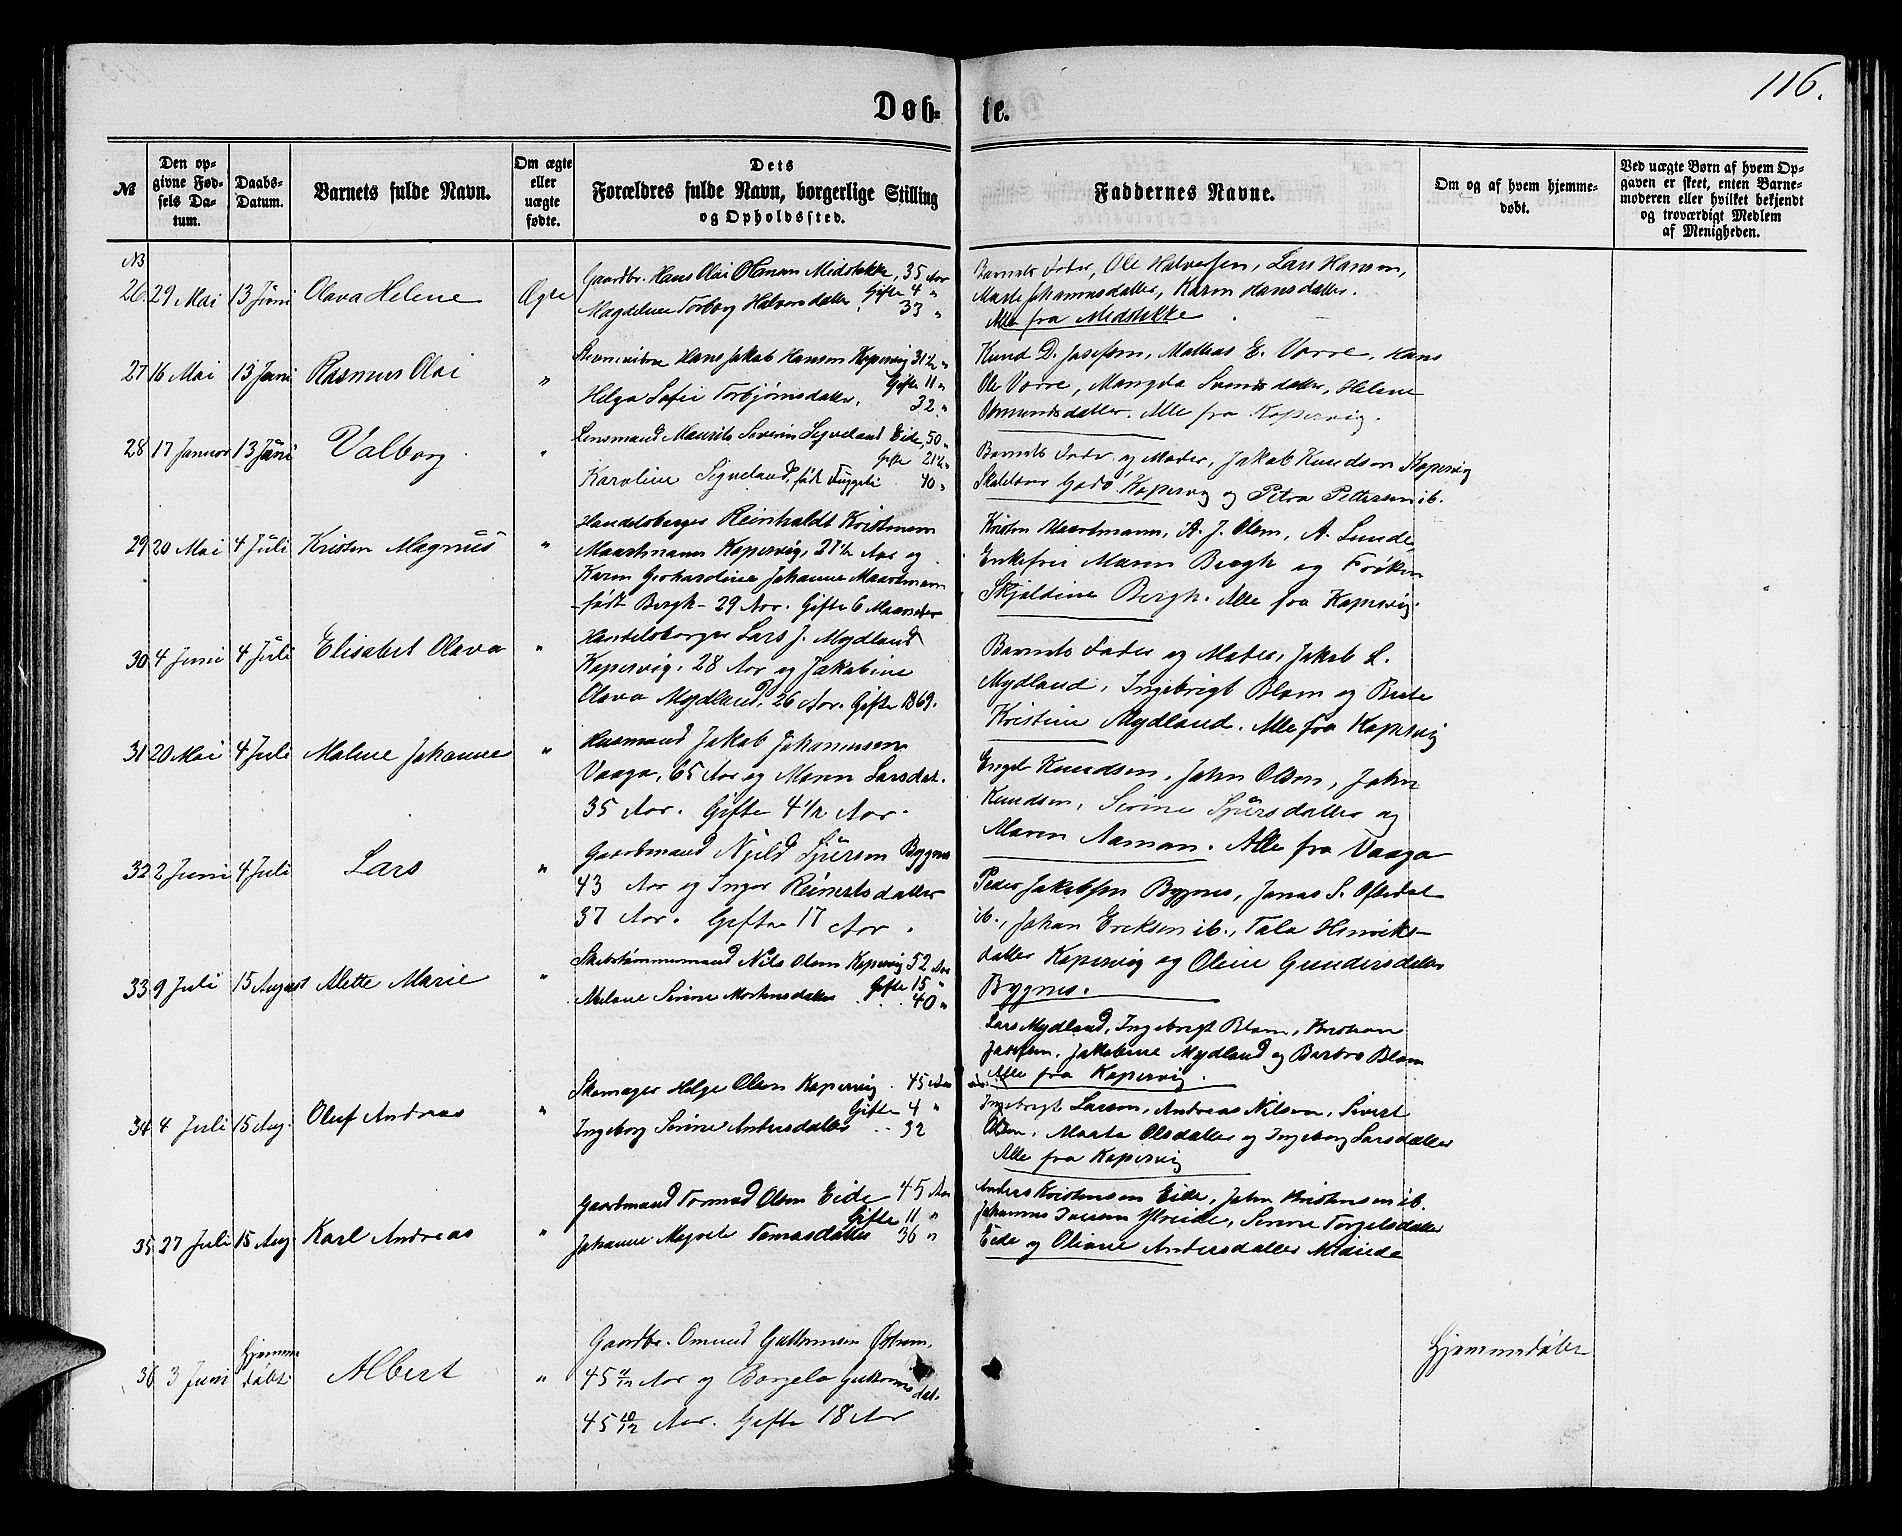 116.
Døb-
te.
№
Den op-
givne Fød-
sels Da-
tum.
Daabs-
Datum.
Barnets fulde Navn.
Om ægte
eller
uægte
fødte.
Dets
Forældres fulde Navn, borgerlige Stilling
og Opholdssted.
Faddernes Navne.
Om og af hvem hjemme-
døbt.
Ved uægte Børn af hvem Op-
gaven er skeet, enten Barne-
moderen eller hvilket bekjendt
og troværdigt Medlem
af Menigheden.
26 29 Mai 13 Juni Olava Helene Ægte
Gaardbr. Hans Olai Midstøkke, 35 Aar
Gifte 4 "
Magdelene Torborg Halvorsdatter 33 "
Barnets Fader, Ole Halvorsen, Lars Hansen,
Marte Johannesdatter, Karen Hansdatter.
Alle fra Midstøkke
27 16 Mai 13 Juni Rasmus Olai "
Hans Jakob Hansen Kopervig 31½ "
Gifte 11 "
Helga Sofie Torbjørnsdatter, 32 "
Knud D. Josefsen, Mathias E. Vorre, Hans
Ole Vorre, Mangda Svensdatter, Helene
Osmundsdatter. Alle fra Kopervig.
28 17 Januar 13 Juni Valborg "
Lensmand Maurits Severin Sigveland Eide, 50 "
Gifte 21½ "
Karoline Sigveland, født 40 "
Barnets Fader og Moder, Jakob Knudsen Kopervig
Skolelærer Godø Kopervig og Petra Pettersen ib.
29 20 Mai 4 Juli Kristen Magnus "
Handelsborger Reinholdt Kristensen
Maartmann Kopervig, 27½ Aar og
Karen Gerhardine Johanne Maartmann
født Bergh - 29 Aar. Gifte 6 Maaneder
Kristen Maartmann, A. J. Olsen, A. Lunde,
Enkefru Maren Bergh og Frøken
Skjoldine Bergh. Alle fra Kopervig.
30 4 Juni 4 Juli Elisabet Olava "
Handelsborger Lars J. Mydland
Kopervig, 28 Aar og Jakobine
Olava Mydland, 26 Aar. Gifte 1869.
Barnets Fader og Moder, Jakob L.
Mydland, Ingebrigt Blom og Berte
Kristine Mydland. Alle fra Kopervig
31 20 Mai 4 Juli Malene Johanne "
Husmand Jakob Johannesen
Vaaga, 65 Aar og Maren Larsdat.
35 Aar. Gifte 4½ Aar.
Engel Knudsen, John Olsen, John
Knudsen, Serine Sjursdatter og
Maren Aaman. Alle fra Vaaga
32 2 Juni 4 Juli Lars "
Gaardmand Njeld Sjursen Bygnes
43 Aar og Inger Reinertsdatter
37 Aar. Gifte 17 Aar.
Peder Jakobsen Bygnes, Jonas S. Oftedal
ib., Johan Eriksen ib., Tala Henriks-
datter Kopervig og Oline Gundersdatter
Bygnes.
33 9 Juli 15 August Alette Marie "
Skibstømmermand Nils Olsen Kopervig 52 Aar
Gifte 15 "
Malene Serine Mortensdatter 40 "
Lars Mydland, Ingebrigt Blom, Kristian
Josefsen, Jakobine Mydland og Barbro Blom
Alle fra Kopervig.
34 4 Juli 15 Aug. Oluf Andreas "
Skomager Helge Olsen Kopervig 45 Aar
Gifte 4 "
Ingeborg Serine Andersdatter 32
Ingebrigt Larsen, Andreas Nilsen, Sivert
Olsen, Marta Olsdatter og Ingeborg Larsdatter
Alle fra Kopervig
35 27 Juli 15 Aug. Karl Andreas "
Gaardmand Tormod Olsen Eide 45 Aar
Gifte 11 "
Johanne Tomasdatter 36 "
Anders Kristensen Eide, John Kristensen ib.
Johannes Iversen Ytreeide, Serine Torgelsdatter
Eide og Oliane Andersdatter Mideide
36 3 Juni Hjemme-
døbt Albert "
Gaardbr. Omund Guttormsen Østrem,
45 Aar og Borgela Guttormsdat.
45 10/12 Aar. Gifte 18 Aar
Hjemmedøbt